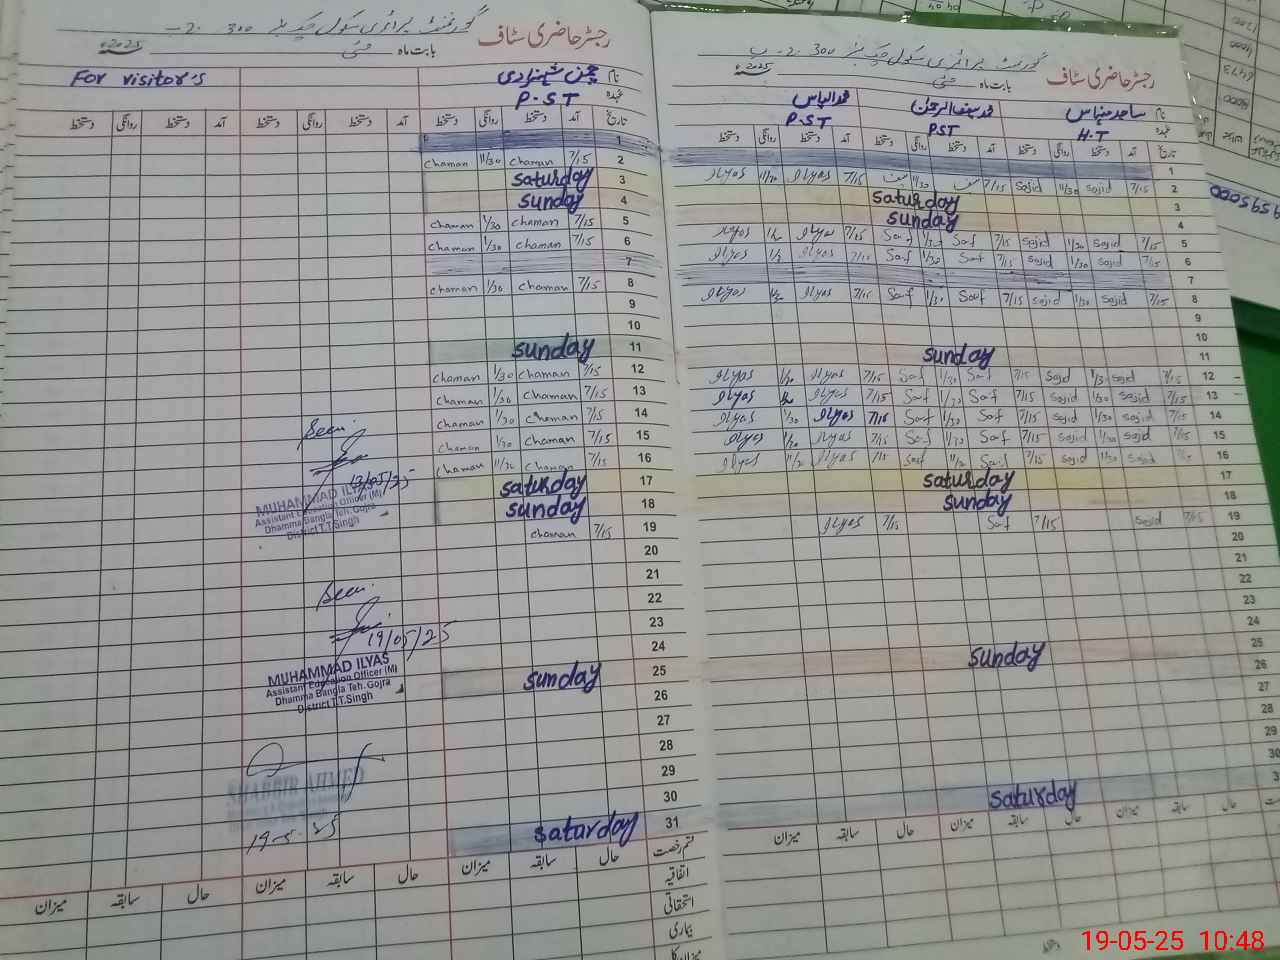 رجسٹر حاضری سٹاف گورنمنٹ پرائمری سکول چک نمبر 300 ج۔2
بابت ماہ مئی 2025
For visitor's
نام چمن شہزادی
عہدہ P.S.T
تاریخ آمد دستخط روانگی دستخط آمد دستخط روانگی دستخط آمد دستخط روانگی دستخط
1
2 7/15 chaman 11/30 chaman
3 saturday
4 sunday
5 7/15 chaman 1/30 chaman
6 7/15 chaman 1/30 chaman
7
8 7/15 chaman 1/30 chaman
9
10
11 sunday
12 7/15 chaman 1/30 chaman
13 7/15 chaman 1/30 chaman
14 7/15 chaman 1/30 chaman
15 7/15 chaman 1/30 chaman
16 7/15 chaman 11/30 chaman
17 saturday
18 sunday
19 7/15 chaman
20
21
22
23
24
25 sunday
26
27
28
29
30
31 saturday
Seen
13/05/25
MUHAMMAD ILYAS
Assistant Education Officer (M)
Dhamma Bangla Teh. Gojra
District T.T.Singh
Seen
19/05/25
MUHAMMAD ILYAS
Assistant Education Officer (M)
Dhamma Bangla Teh. Gojra
District T.T.Singh
SHABBIR AHMED
19-5-25
قسم رخصت حال سابقہ میزان حال سابقہ میزان حال سابقہ میزان
اتفاقیہ
استحقاقی
بیماری
رجسٹر حاضری سٹاف گورنمنٹ پرائمری سکول چک نمبر 300 ج۔2
بابت ماہ مئی 2025
نام ساجد عباس محمد سیف الرحمن محمد الیاس
عہدہ H.T PST P.S.T
تاریخ آمد دستخط روانگی دستخط آمد دستخط روانگی دستخط آمد دستخط روانگی دستخط
1
2 7/15 sajid 11/30 sajid 7/15 سیف 11/30 سیف 7/15 Ilyas 11/30 Ilyas
3 saturday
4 sunday
5 7/15 sajid 1/30 sajid 7/15 Saf 1/30 Saf 7/15 Ilyas Ilyas
6 7/15 sajid 1/30 sajid 7/15 Saf 1/30 Saf 7/15 Ilyas Ilyas
7
8 7/15 sajid 1/30 sajid 7/15 Saf 1/30 Saf 7/15 Ilyas Ilyas
9
10
11 sunday
12 7/15 sajid 1/30 sajid 7/15 Saf 1/30 Saf 7/15 Ilyas 1/30 Ilyas
13 7/15 sajid 1/30 sajid 7/15 Saf 1/30 Saf 7/15 Ilyas Ilyas
14 7/15 sajid 1/30 sajid 7/15 Saf 1/30 Saf 7/15 Ilyas 1/30 Ilyas
15 7/15 sajid 1/30 sajid 7/15 Saf 1/30 Saf 7/15 Ilyas 1/30 Ilyas
16 sajid 11/30 sajid 7/15 Saf Saf 7/15 Ilyas Ilyas
17 saturday
18 sunday
19 7/15 sajid 7/15 Saf 7/15 Ilyas
20
21
22
23
24
25 sunday
26
27
28
29
30
saturday
حال سابقہ میزان حال سابقہ میزان حال سابقہ میزان
19-05-25 10:48